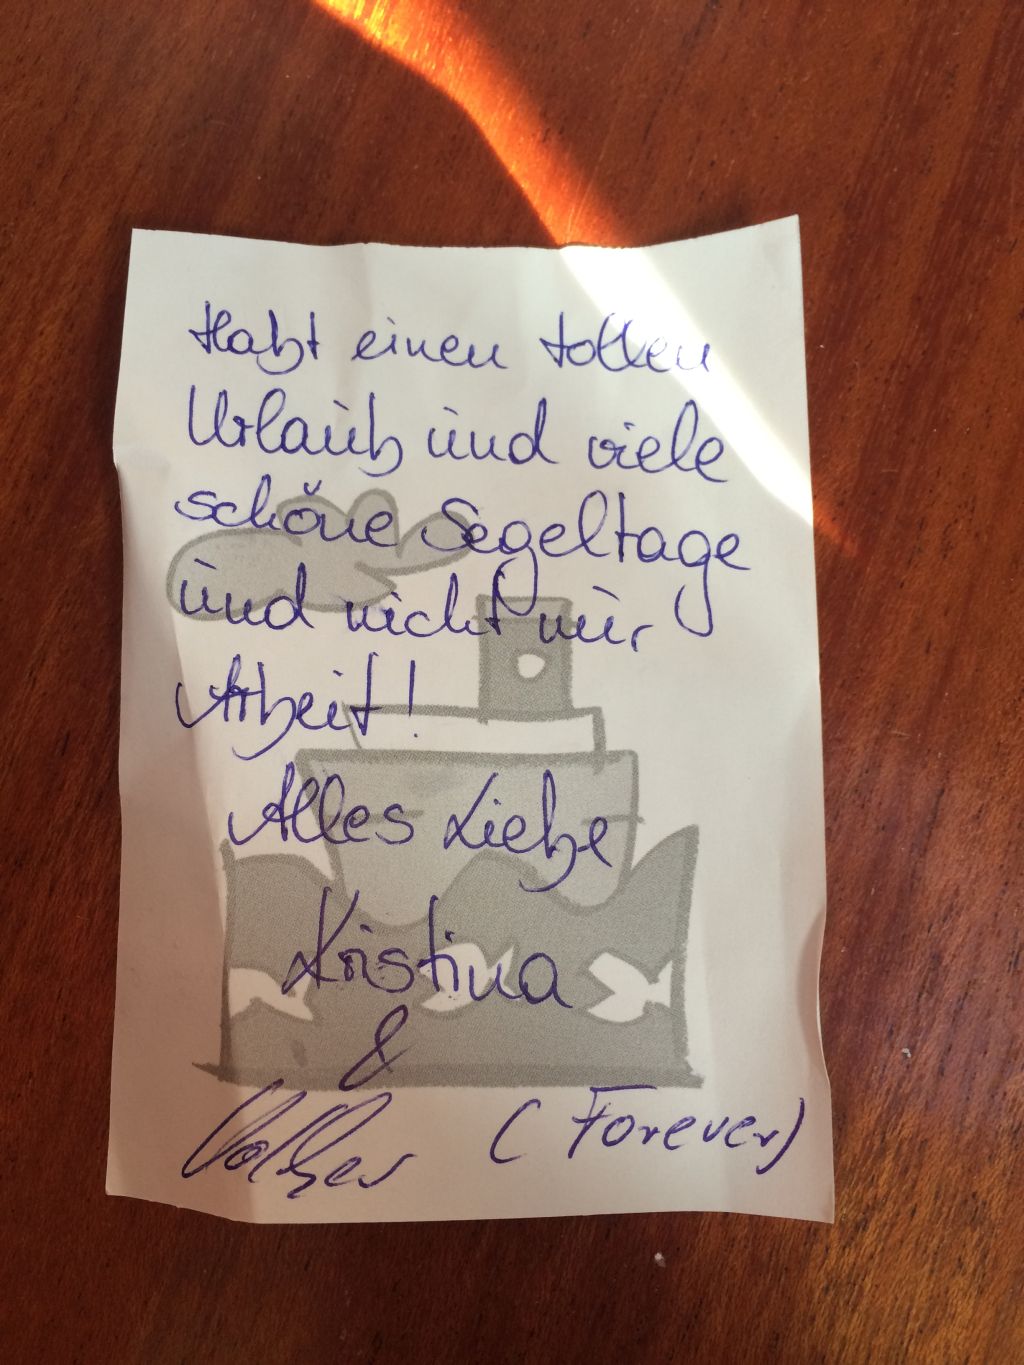 Habt einen tollen
Urlaub und viele
schöne Segeltage
und nicht nur
Arbeit!
Alles Liebe
Kristina
&
(Forever)